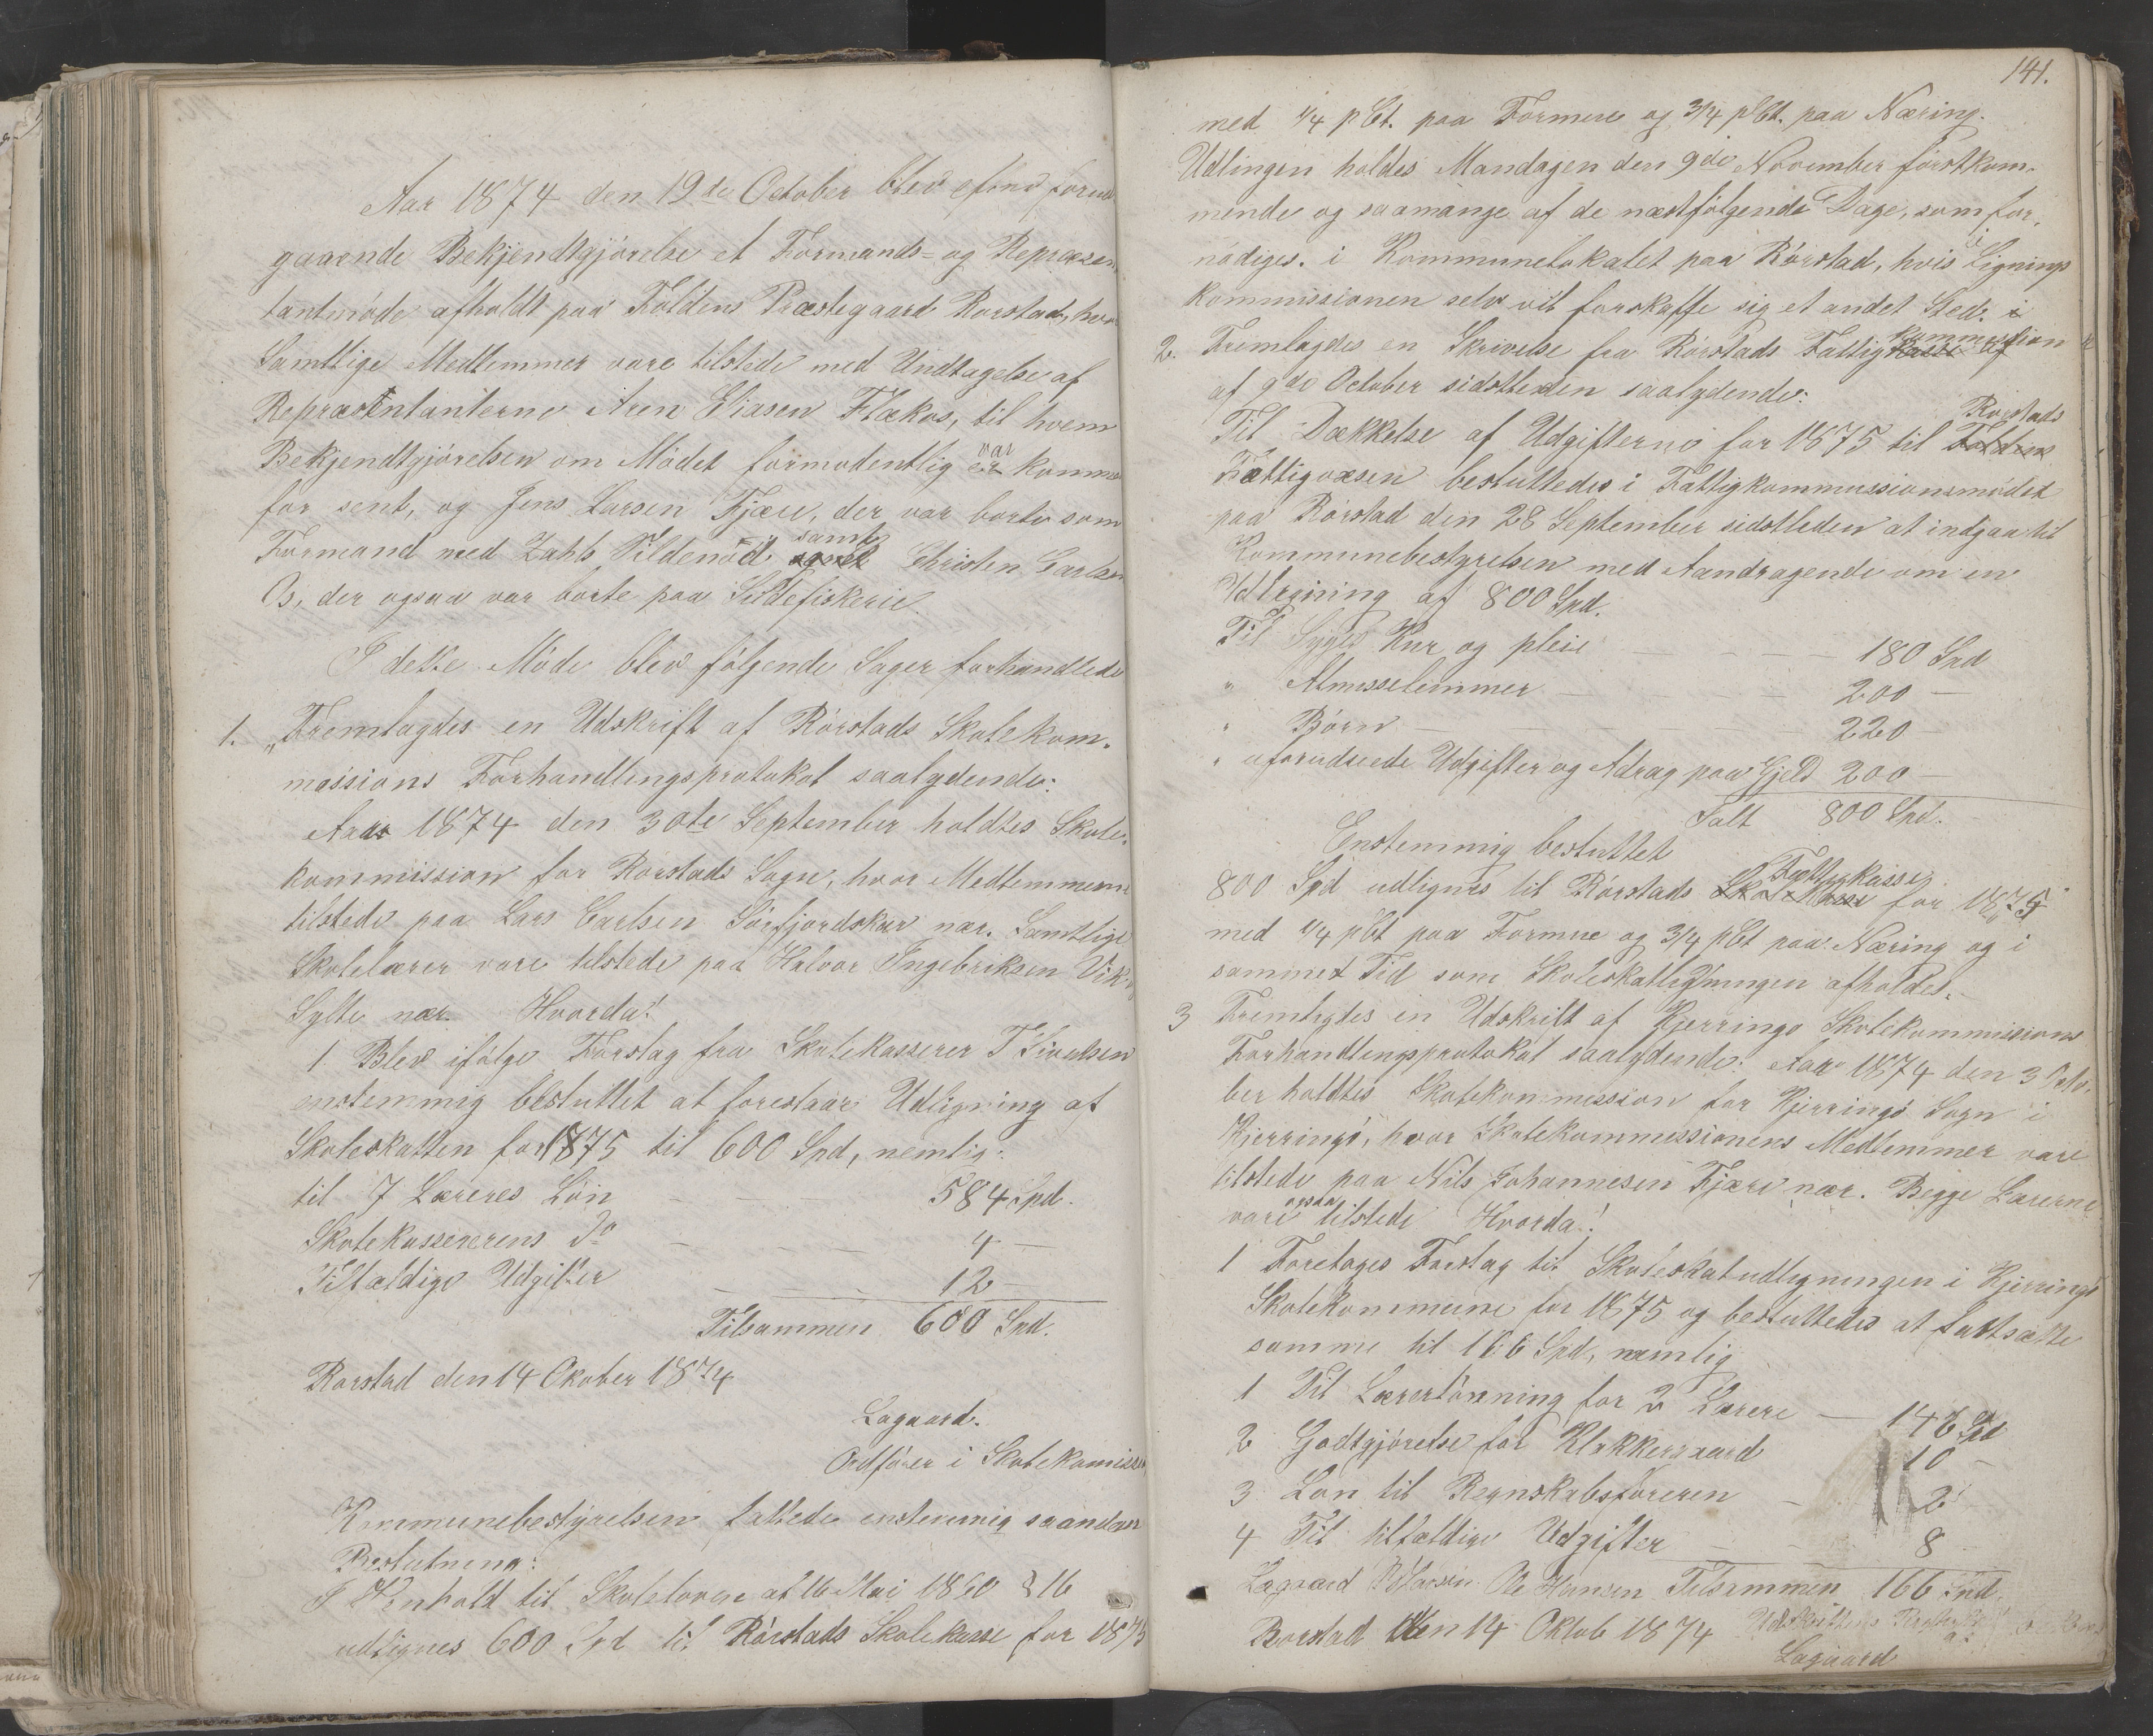 Aar 1874 den 19de October blev efter forud
gaaende Bekjendtgjörelse et Formands= og Repræsen
tantmöde afholdt paa Foldens Præstegaard Rørstad, hvor
Samtlige Medlemmer vare tilstede med Undtagelse af
Repræsentanterne Aren Eliasen Flækos, til hvem
Bekjendtgjörelsen om Mödet formodentlig er var kommen
for sent, og Jens Larsen Fjære, der var borte som
Formand med Zahls Sildenöd samt samt Christen Carlsen
Os, der ogsaa var borte paa Sildefiskerie.
I dette Möde blev fölgende Sager forhandlede
1. „Fremlagdes en Udskrift af Rörstads Skolekom-
missions Forhandlingsprotokol saalydende:
Aar 1874 den 30te September holdtes Skole-
kommission for Rörstads Sogn, hvor Medlemmerne
tilstede paa Lars Carlsen Sörfjordskar nær. Samtlige
Skolelærer vare tilstede paa Halvor Ingebriksen Vik
Sylte nær. Hvorda!
1 Blev ifölge Forslag fra Skolekasserer T Sivertsen
enstemmig besluttet at forestaar Udligning af
Skoleskatten for 1875 til 600 Spd, nemlig:
til 7 Læreres Lön 584 Spd.
Skolekassererens Do 4 —
Tilfældige Udgifter 12 —
Tilsammen 600 Spd.
Rørstad den 14 Okober 1874
Lagaard.
Ordförer i Skolekomiss
Kommunebestyrelsen fattede enstemmig saadan
Beslutning:
I Henhold til Skoleloven af 16 Mai 1860 § 16
udlignes 600 Spd til Rörstads Skolekasse for 1875
141.
med 1/4 pCt. paa Formue og 3/4 pCt. paa Næring.
Udlingen holdes Mandagen den 9de November förstkom-
mende og saamange af de næstfölgende Dage, som for-
nödiges. i Kommunelokalet paa Rörstad, hvis ei Lignings
kommissionen selv vil forskaffe sig et andet Sted.
2. Fremlagdes en Skrivelse fra Rörstads Fattigkasse kommission af
af 9de October sidstleden saalydende:
Til Dækkelse af Udgifterne for 1875 til Foldens Rørstads
Fattigvæsen besluttedes i Fattigkommissionsmödet
paa Rörstad den 28 September sidstleden at indgaa til
Kommunebestyrelsen med Aandragende om en
Udligning af 800 Spd.
Til Syges Kur og pleie 180 Spd
" Almisselemmer 200 —
" Börn 220 —
" uforudseede Udgifter og Adrag paa Gjeld 200 —
Ialt 800 Spd.
Enstemmig besluttet
800 Spd udlignes til Rörstads Skolekasse Fattigkasse for 1875
med 1/4 pCt paa Formue og 3/4 pCt paa Næring og i
sammet Tid som Skoleskatligningen afholdes.
3 Fremlagdes en Udskrift af Kjerringö Skolekommissions
Forhandlingsprotokol saalydende: Aar 1874 den 3 Octo-
ber holdtes Skolekommission for Kjerringö Sogn i
Kjerringö, hvor Skolekommissionens Medlemmer vare
tilstede paa Nils Johannesen Fjære nær. Begge Lærerne
vare ogsaa tilstede Hvorda!
1 Foretages Forslag til Skoleskatudligningen i Kjerringö
Skolekommune for 1875 og besluttedes at fastsætte
samme til 166 Spd, nemlig
1 Til Lærerlönning for 2 Lærere — 146 Spd
2 Godtgjörelse for Klokkergaard 10 —
3 Lön til Regnskabsföreren — 2
4 Til tilfældige Udgifter 8
Lagaard Larsen Ole Hansen Tilsammen 166 Spd
Rorstad den 14 Oktob 1874 Udskriftens
Lagaard